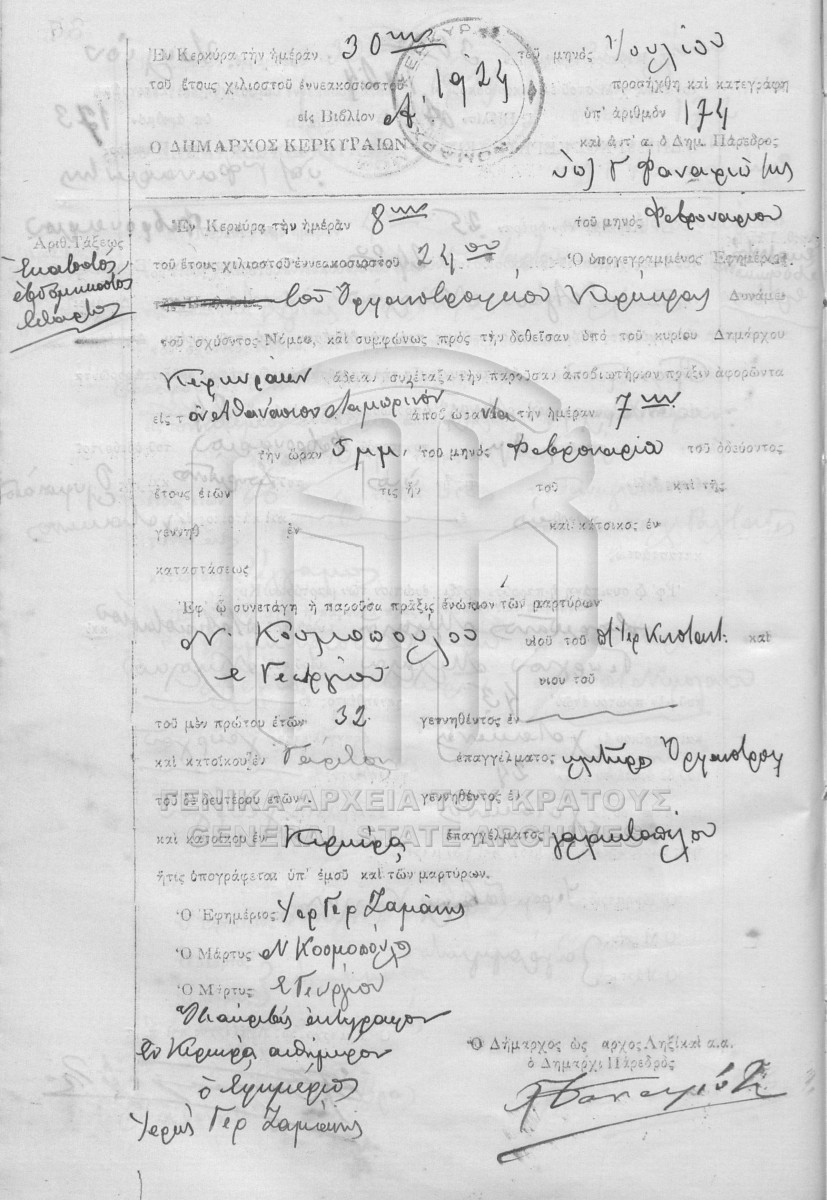 Ἐν Κερκύρᾳ τὴν ἡμέραν 30ην τοῦ μηνός Ἰουλίου
τοῦ ἔτους χιλιοστοῦ ἐννεακοσιοστοῦ 1924 προσήχθη καὶ κατεγράφη
εἰς Βιβλίον Α. ὑπ' ἀριθμὸν 174
Ο ΔΗΜΑΡΧΟΣ ΚΕΡΚΥΡΑΙΩΝ καὶ ἀντ' α. ὁ Δημ. Πάρεδρος
Φαναριώτης
Ἐν Κερκύρᾳ τὴν ἡμέραν 8ην τοῦ μηνός Φεβρουαρίου
Ἀριθ. Τάξεως
Ἑκατοστός
ἑβδομηκοστός
τέταρτος
τοῦ ἔτους χιλιοστοῦ ἐννεακοσιοστοῦ 24ου Ὁ ὑπογεγραμμένος Ἐφημέριος
τοῦ Ὀρφανοτροφείου Κερκύρας Δυνάμει
τοῦ ἰσχύοντος Νόμου, καὶ συμφώνως πρὸς τὴν δοθεῖσαν ὑπὸ τοῦ κυρίου Δημάρχου
Κερκυραίων ἄδειαν συνέταξα τὴν παροῦσαν ἀποβιωτήριον πρᾶξιν ἀφορῶντα
εἰς τὸν Ἀθανάσιον ἀποβιώσαντα τὴν ἡμέραν 7ην
τὴν ὥραν 5 μμ. τοῦ μηνός Φεβρουαρίου τοῦ ὁδεύοντος
ἔτους ἐτῶν τις ἦν τοῦ καὶ τῆς
γεννηθ ἐν καὶ κάτοικος ἐν
καταστάσεως
Ἐφ' ᾧ συνετάγη ἡ παροῦσα πρᾶξις ἐνώπιον τῶν μαρτύρων
Ν. Κοσμοπούλου υἱοῦ τοῦ καὶ
Γεωργίου υἱοῦ τοῦ
τοῦ μὲν πρώτου ἐτῶν 32 γεννηθέντος ἐν
καὶ κατοίκου ἐν ἐπαγγέλματος κλητῆρος Ὀρφανοτροφ
τοῦ δὲ δευτέρου ἐτῶν γεννηθέντος ἐν
ΓΕΝΙΚΑ ΑΡΧΕΙΑ ΤΟΥ ΚΡΑΤΟΥΣ
GENERAL STATE ARCHIVES
καὶ κατοίκου ἐν Κερκύρᾳ ἐπαγγέλματος
ἥτις ὑπογράφεται ὑπ' ἐμοῦ καὶ τῶν μαρτύρων.
Ὁ Ἐφημέριος Ἱερ Γερ Ζαμάνης
Ὁ Μάρτυς Ν Κοσμοπούλο
Ὁ Μάρτυς Γεωργίου
Διὰ ἀκριβὲς ἀντίγραφον
Ἐν Κερκύρᾳ αὐθήμερον
ὁ Ἐφημέριος
Ἱερεὺς Γερ Ζαμάνης
Ὁ Δήμαρχος ὡς αρχος Ληξίκαὶ α.α.
ὁ Δημαρχι Πάρεδρος
Φαναριώτη